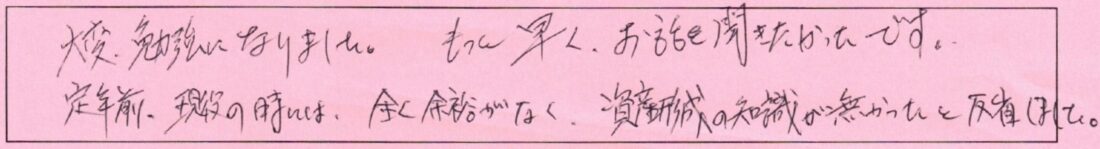 大変、勉強になりました。 もっと早く、お話を聞きたかったです。
定年前、現役の時には、全く余裕がなく、資産形成の知識が無かったと反省しました。